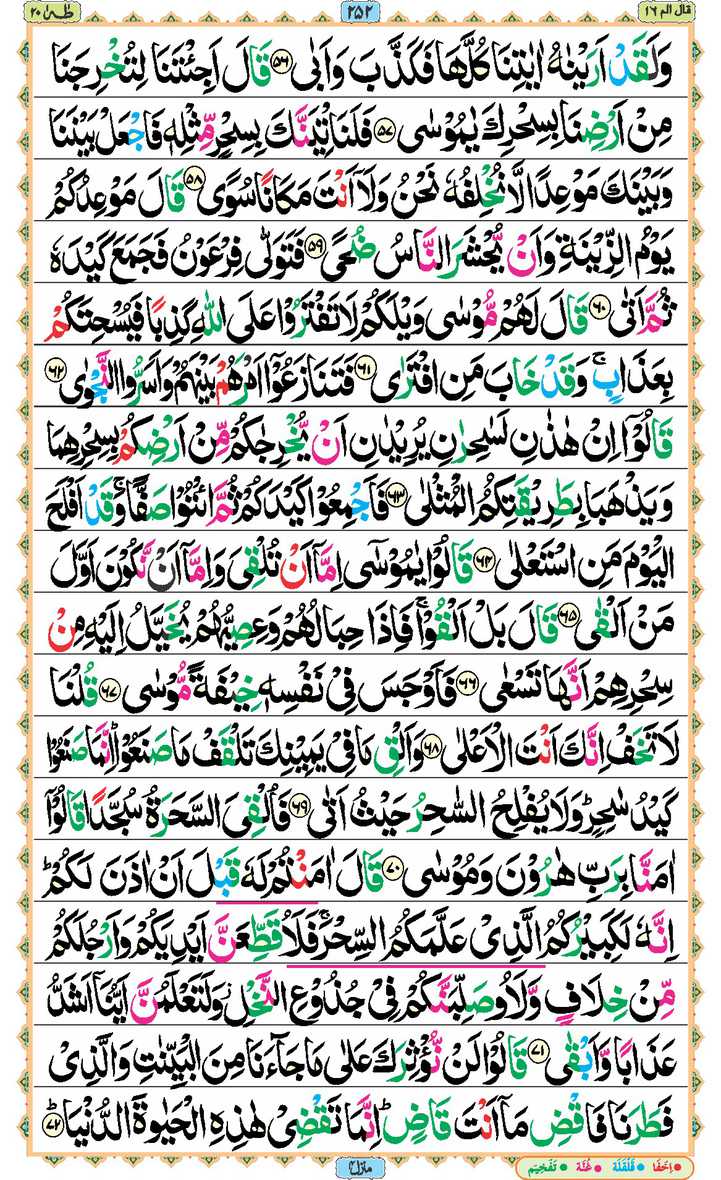 قال الم ١٦ ٢٥٢ طٰهٰ ٢٠
وَلَقَدْ اَرَيْنٰهُ اٰيٰتِنَا كُلَّهَا فَكَذَّبَ وَاَبٰى ۝٥٦ قَالَ اَجِئْتَنَا لِتُخْرِجَنَا
مِنْ اَرْضِنَا بِسِحْرِكَ يٰمُوْسٰى ۝٥٧ فَلَنَاْتِيَنَّكَ بِسِحْرٍ مِّثْلِهٖ فَاجْعَلْ بَيْنَنَا
وَبَيْنَكَ مَوْعِدًا لَّا نُخْلِفُهٗ نَحْنُ وَلَاۤ اَنْتَ مَكَانًا سُوًى ۝٥٨ قَالَ مَوْعِدُكُمْ
يَوْمُ الزِّيْنَةِ وَاَنْ يُّحْشَرَ النَّاسُ ضُحًى ۝٥٩ فَتَوَلّٰى فِرْعَوْنُ فَجَمَعَ كَيْدَهٗ
ثُمَّ اَتٰى ۝٦٠ قَالَ لَهُمْ مُّوْسٰى وَيْلَكُمْ لَا تَفْتَرُوْا عَلَى اللّٰهِ كَذِبًا فَيُسْحِتَكُمْ
بِعَذَابٍ ۚ وَقَدْ خَابَ مَنِ افْتَرٰى ۝٦١ فَتَنَازَعُوْۤا اَمْرَهُمْ بَيْنَهُمْ وَاَسَرُّوا النَّجْوٰى ۝٦٢
قَالُوْۤا اِنْ هٰذٰنِ لَسٰحِرٰنِ يُرِيْدٰنِ اَنْ يُّخْرِجٰكُمْ مِّنْ اَرْضِكُمْ بِسِحْرِهِمَا
وَيَذْهَبَا بِطَرِيْقَتِكُمُ الْمُثْلٰى ۝٦٣ فَاَجْمِعُوْا كَيْدَكُمْ ثُمَّ ائْتُوْا صَفًّا ۚ وَقَدْ اَفْلَحَ
الْيَوْمَ مَنِ اسْتَعْلٰى ۝٦٤ قَالُوْا يٰمُوْسٰۤى اِمَّاۤ اَنْ تُلْقِىَ وَاِمَّاۤ اَنْ نَّكُوْنَ اَوَّلَ
مَنْ اَلْقٰى ۝٦٥ قَالَ بَلْ اَلْقُوْا ۚ فَاِذَا حِبَالُهُمْ وَعِصِيُّهُمْ يُخَيَّلُ اِلَيْهِ مِنْ
سِحْرِهِمْ اَنَّهَا تَسْعٰى ۝٦٦ فَاَوْجَسَ فِىْ نَفْسِهٖ خِيْفَةً مُّوْسٰى ۝٦٧ قُلْنَا
لَا تَخَفْ اِنَّكَ اَنْتَ الْاَعْلٰى ۝٦٨ وَاَلْقِ مَا فِىْ يَمِيْنِكَ تَلْقَفْ مَا صَنَعُوْا ؕ اِنَّمَا صَنَعُوْا
كَيْدُ سٰحِرٍ ؕ وَلَا يُفْلِحُ السّٰحِرُ حَيْثُ اَتٰى ۝٦٩ فَاُلْقِىَ السَّحَرَةُ سُجَّدًا قَالُوْۤا
اٰمَنَّا بِرَبِّ هٰرُوْنَ وَمُوْسٰى ۝٧٠ قَالَ اٰمَنْتُمْ لَهٗ قَبْلَ اَنْ اٰذَنَ لَكُمْ ؕ
اِنَّهٗ لَكَبِيْرُكُمُ الَّذِىْ عَلَّمَكُمُ السِّحْرَ ۚ فَلَاُقَطِّعَنَّ اَيْدِيَكُمْ وَاَرْجُلَكُمْ
مِّنْ خِلَافٍ وَّلَاُوصَلِّبَنَّكُمْ فِىْ جُذُوْعِ النَّخْلِ ؗ وَلَتَعْلَمُنَّ اَيُّنَاۤ اَشَدُّ
عَذَابًا وَّاَبْقٰى ۝٧١ قَالُوْا لَنْ نُّؤْثِرَكَ عَلٰى مَا جَآءَنَا مِنَ الْبَيِّنٰتِ وَالَّذِىْ
فَطَرَنَا فَاقْضِ مَاۤ اَنْتَ قَاضٍ ؕ اِنَّمَا تَقْضِىْ هٰذِهِ الْحَيٰوةَ الدُّنْيَا ؕ ۝٧٢
منزل ٤
اِخفَا قَلْقَلَة غُنَّة تَفْخِيم